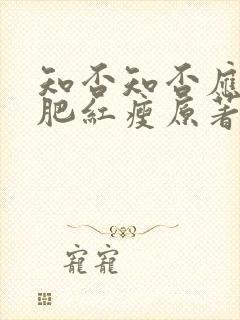 知否知否應
肥紅瘦原著
寵寵